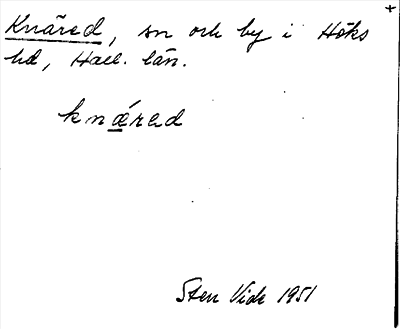 +
Knäred, sn och by i Höks
hd, Hall. län.
knæred
Sten Vide 1951